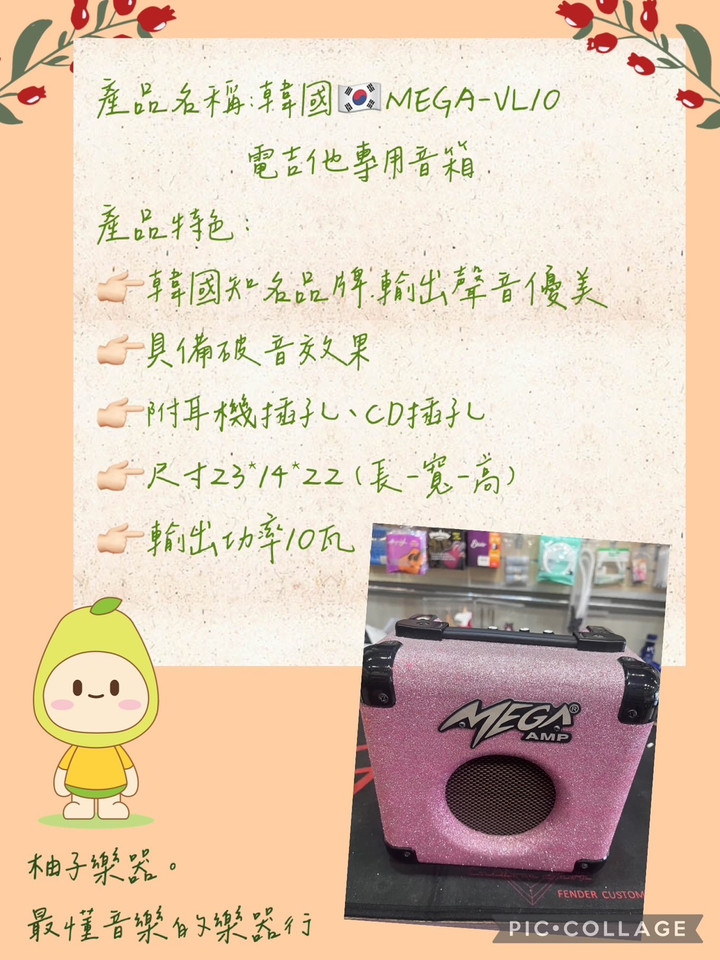 產品名稱:韓國🇰🇷MEGA-VL10
電吉他專用音箱
產品特色:
👉🏻韓國知名品牌.輸出聲音優美
👉🏻具備破音效果
👉🏻附耳機插孔、CD插孔
👉🏻尺寸23*14*22(長-寬-高)
👉🏻輸出功率10瓦
MEGA®
AMP
FENDER CUSTOM
柚子樂器。
最懂音樂的樂器行
PIC•COLLAGE